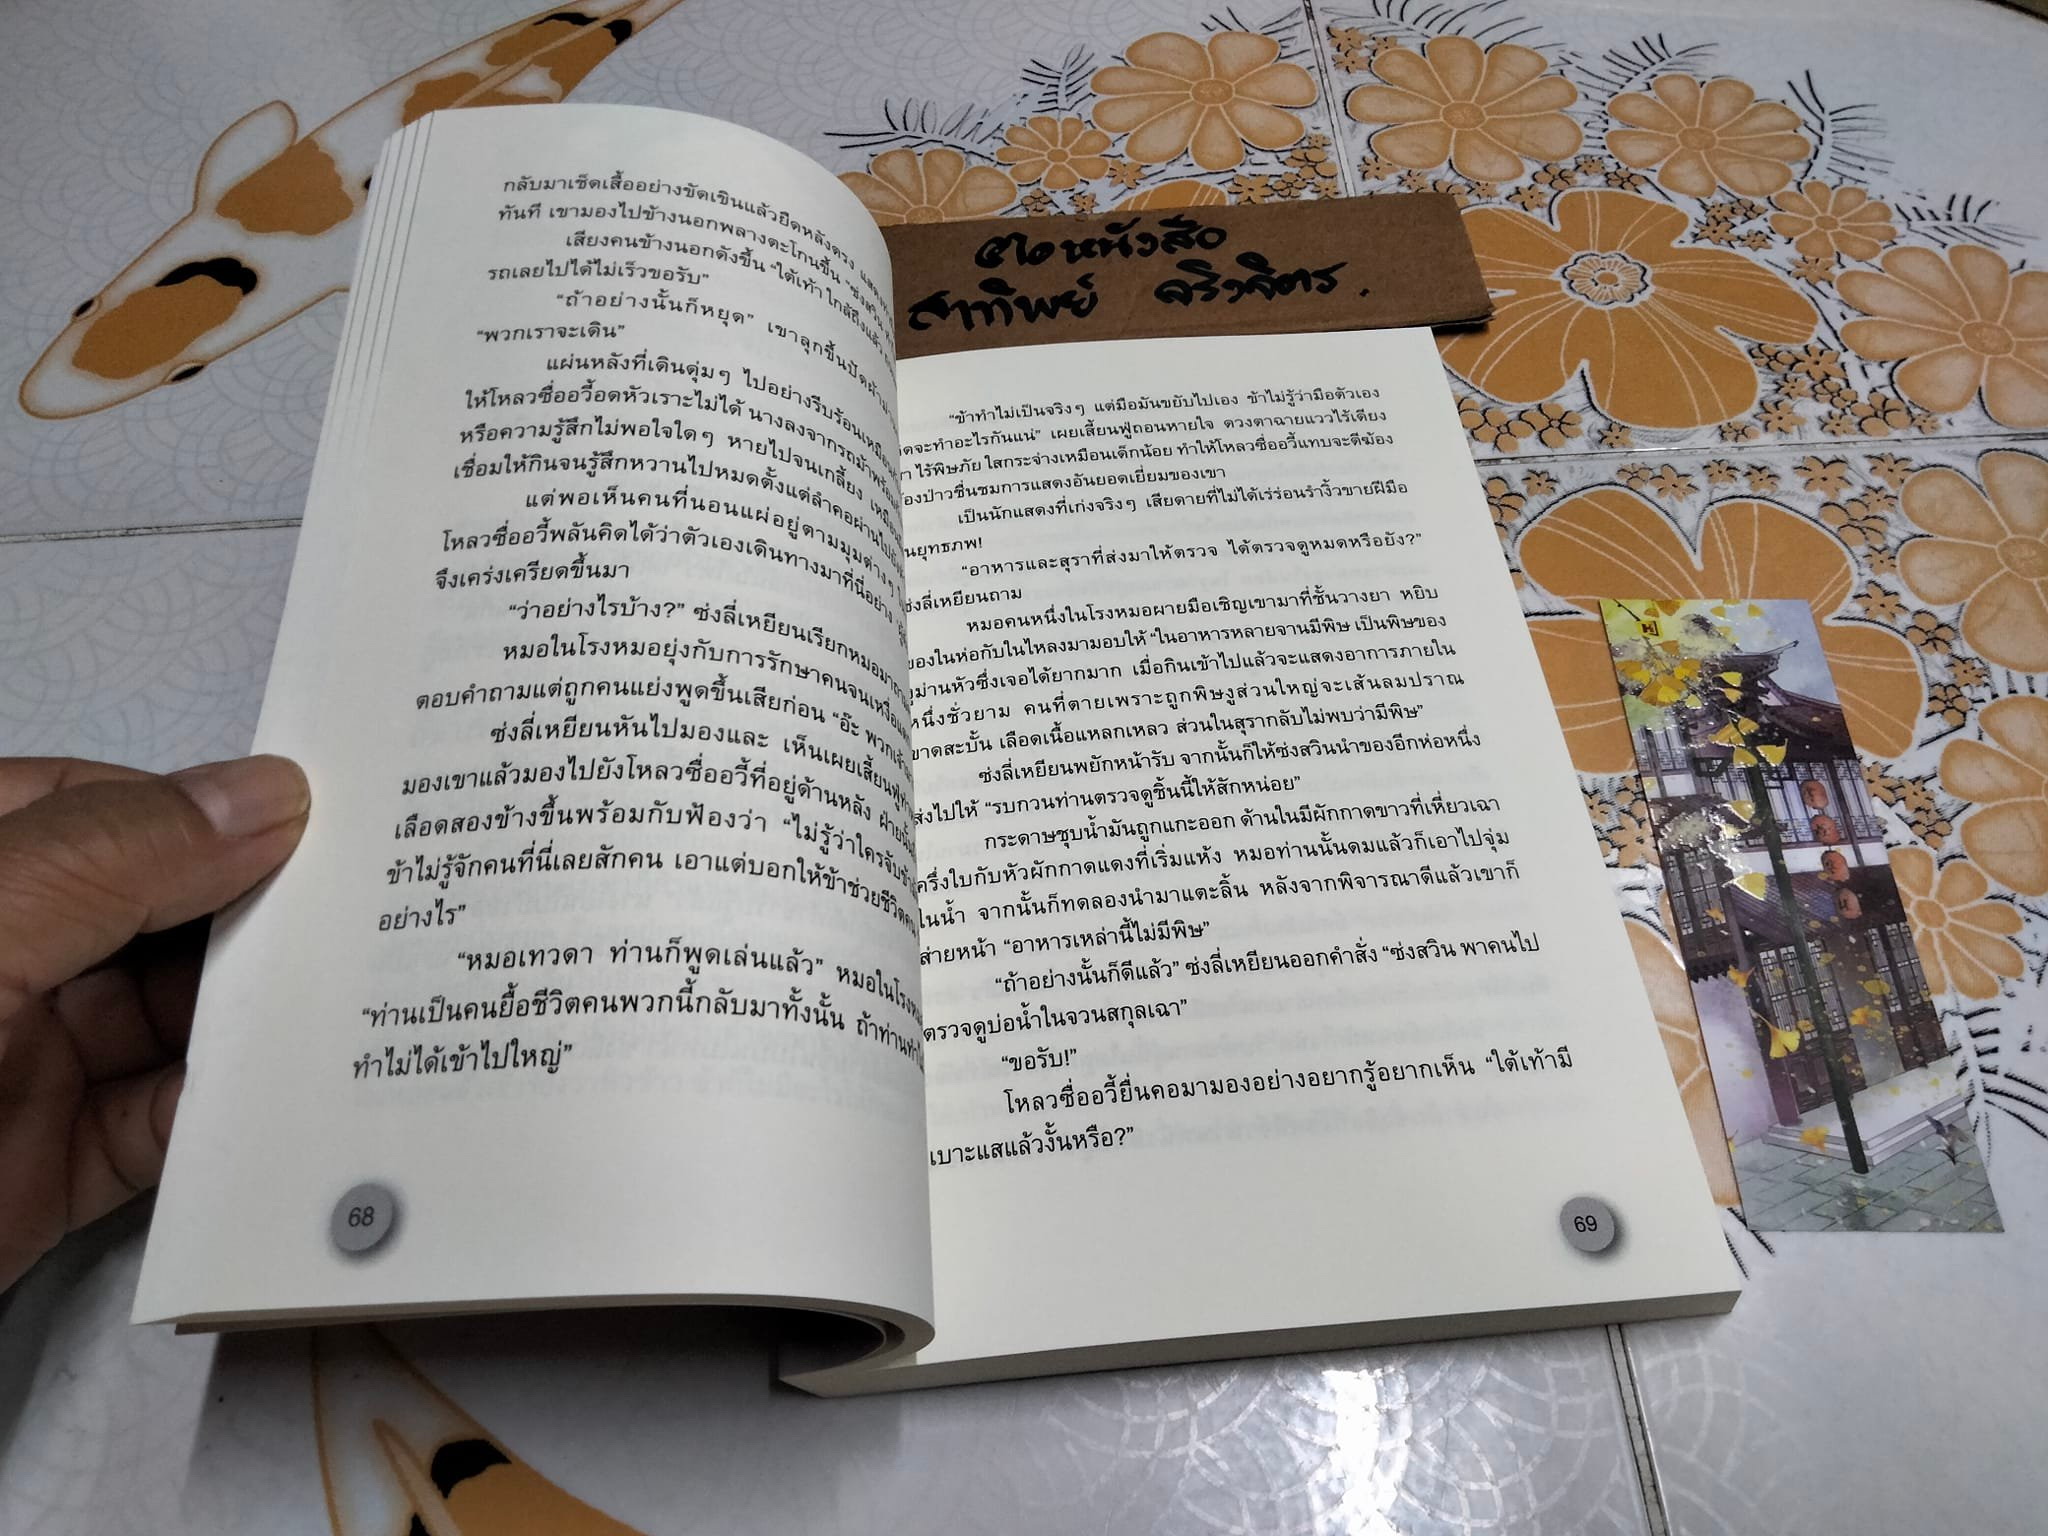 กลับมาเช็ดเสื้ออย่างขัดเขินแล้วยืดหลังตรง
ทันที เขามองไปข้างนอกพลางตะโกนขึ้น “ซ่งสวิน
เสียงคนข้างนอกดังขึ้น “ใต้เท้า ใกล้ถึงแล้ว
รถเลยไปได้ไม่เร็วขอรับ”
“ถ้าอย่างนั้นก็หยุด” เขาลุกขึ้นปัดผ้าม่าน
“พวกเราจะเดิน”
แผ่นหลังที่เดินดุ่มๆ ไปอย่างรีบร้อนเหมือน
ให้โหลวชื่ออวี้อดหัวเราะไม่ได้ นางลงจากรถม้าพร้อม
หรือความรู้สึกไม่พอใจใดๆ หายไปจนเกลี้ยง เหมือน
เชื่อมให้กินจนรู้สึกหวานไปหมดตั้งแต่ลำคอผ่านไปยัง
แต่พอเห็นคนที่นอนแผ่อยู่ตามมุมต่างๆ
โหลวชื่ออวี้พลันคิดได้ว่าตัวเองเดินทางมาที่นี่อย่าง
จึงเคร่งเครียดขึ้นมา
“ว่าอย่างไรบ้าง?” ซ่งลี่เหยียนเรียกหมอมาถาม
หมอในโรงหมอยุ่งกับการรักษาคนจนเหงื่อแตก
ตอบคำถามแต่ถูกคนแย่งพูดขึ้นเสียก่อน “อ๊ะ พวกเจ้า
ซ่งลี่เหยียนหันไปมองและ เห็นเผยเสี้ยนฟู่
มองเขาแล้วมองไปยังโหลวชื่ออวี้ที่อยู่ด้านหลัง ฝ่ายนั้น
เลือดสองข้างขึ้นพร้อมกับฟ้องว่า “ไม่รู้ว่าใครจับข้า
ข้าไม่รู้จักคนที่นี่เลยสักคน เอาแต่บอกให้ข้าช่วยชีวิตคน
อย่างไร”
“หมอเทวดา ท่านก็พูดเล่นแล้ว” หมอในโรงหมอ
“ท่านเป็นคนยื้อชีวิตคนพวกนี้กลับมาทั้งนั้น ถ้าท่านทำ
ทำไม่ได้เข้าไปใหญ่”
68
ขอหนังสือ
สาทิพย์ จริงจิตร.
“ข้าทำไม่เป็นจริงๆ แต่มือมันขยับไปเอง ข้าไม่รู้ว่ามือตัวเอง
จะทำอะไรกันแน่” เผยเสี้ยนฟู่ถอนหายใจ ดวงตาฉายแววไร้เดียง
ไร้พิษภัย ใสกระจ่างเหมือนเด็กน้อย ทำให้โหลวชื่ออวี้แทบจะตีฆ้อง
ร้องป่าวชื่นชมการแสดงอันยอดเยี่ยมของเขา
เป็นนักแสดงที่เก่งจริงๆ เสียดายที่ไม่ได้เร่ร่อนรำงิ้วขายฝีมือ
ในยุทธภพ!
“อาหารและสุราที่ส่งมาให้ตรวจ ได้ตรวจดูหมดหรือยัง?”
ซ่งลี่เหยียนถาม
หมอคนหนึ่งในโรงหมอผายมือเชิญเขามาที่ชั้นวางยา หยิบ
ของในห่อกับในไหลงมามอบให้ “ในอาหารหลายจานมีพิษ เป็นพิษของ
งูม่านหัวซึ่งเจอได้ยากมาก เมื่อกินเข้าไปแล้วจะแสดงอาการภายใน
หนึ่งชั่วยาม คนที่ตายเพราะถูกพิษงูส่วนใหญ่จะเส้นลมปราณ
ขาดสะบั้น เลือดเนื้อแหลกเหลว ส่วนในสุรากลับไม่พบว่ามีพิษ”
ซ่งลี่เหยียนพยักหน้ารับ จากนั้นก็ให้ซ่งสวินนำของอีกห่อหนึ่ง
ส่งไปให้ “รบกวนท่านตรวจดูชิ้นนี้ให้สักหน่อย”
กระดาษชุบน้ำมันถูกแกะออก ด้านในมีผักกาดขาวที่เหี่ยวเฉา
ครึ่งใบกับหัวผักกาดแดงที่เริ่มแห้ง หมอท่านนั้นดมแล้วก็เอาไปจุ่ม
ในน้ำ จากนั้นก็ทดลองนำมาแตะลิ้น หลังจากพิจารณาดีแล้วเขาก็
ส่ายหน้า “อาหารเหล่านี้ไม่มีพิษ”
“ถ้าอย่างนั้นก็ดีแล้ว” ซ่งลี่เหยียนออกคำสั่ง “ซ่งสวิน พาคนไป
ตรวจดูบ่อน้ำในจวนสกุลเฉา”
“ขอรับ!”
โหลวชื่ออวี้ยื่นคอมามองอย่างอยากรู้อยากเห็น “ใต้เท้ามี
เบาะแสแล้วงั้นหรือ?”
69